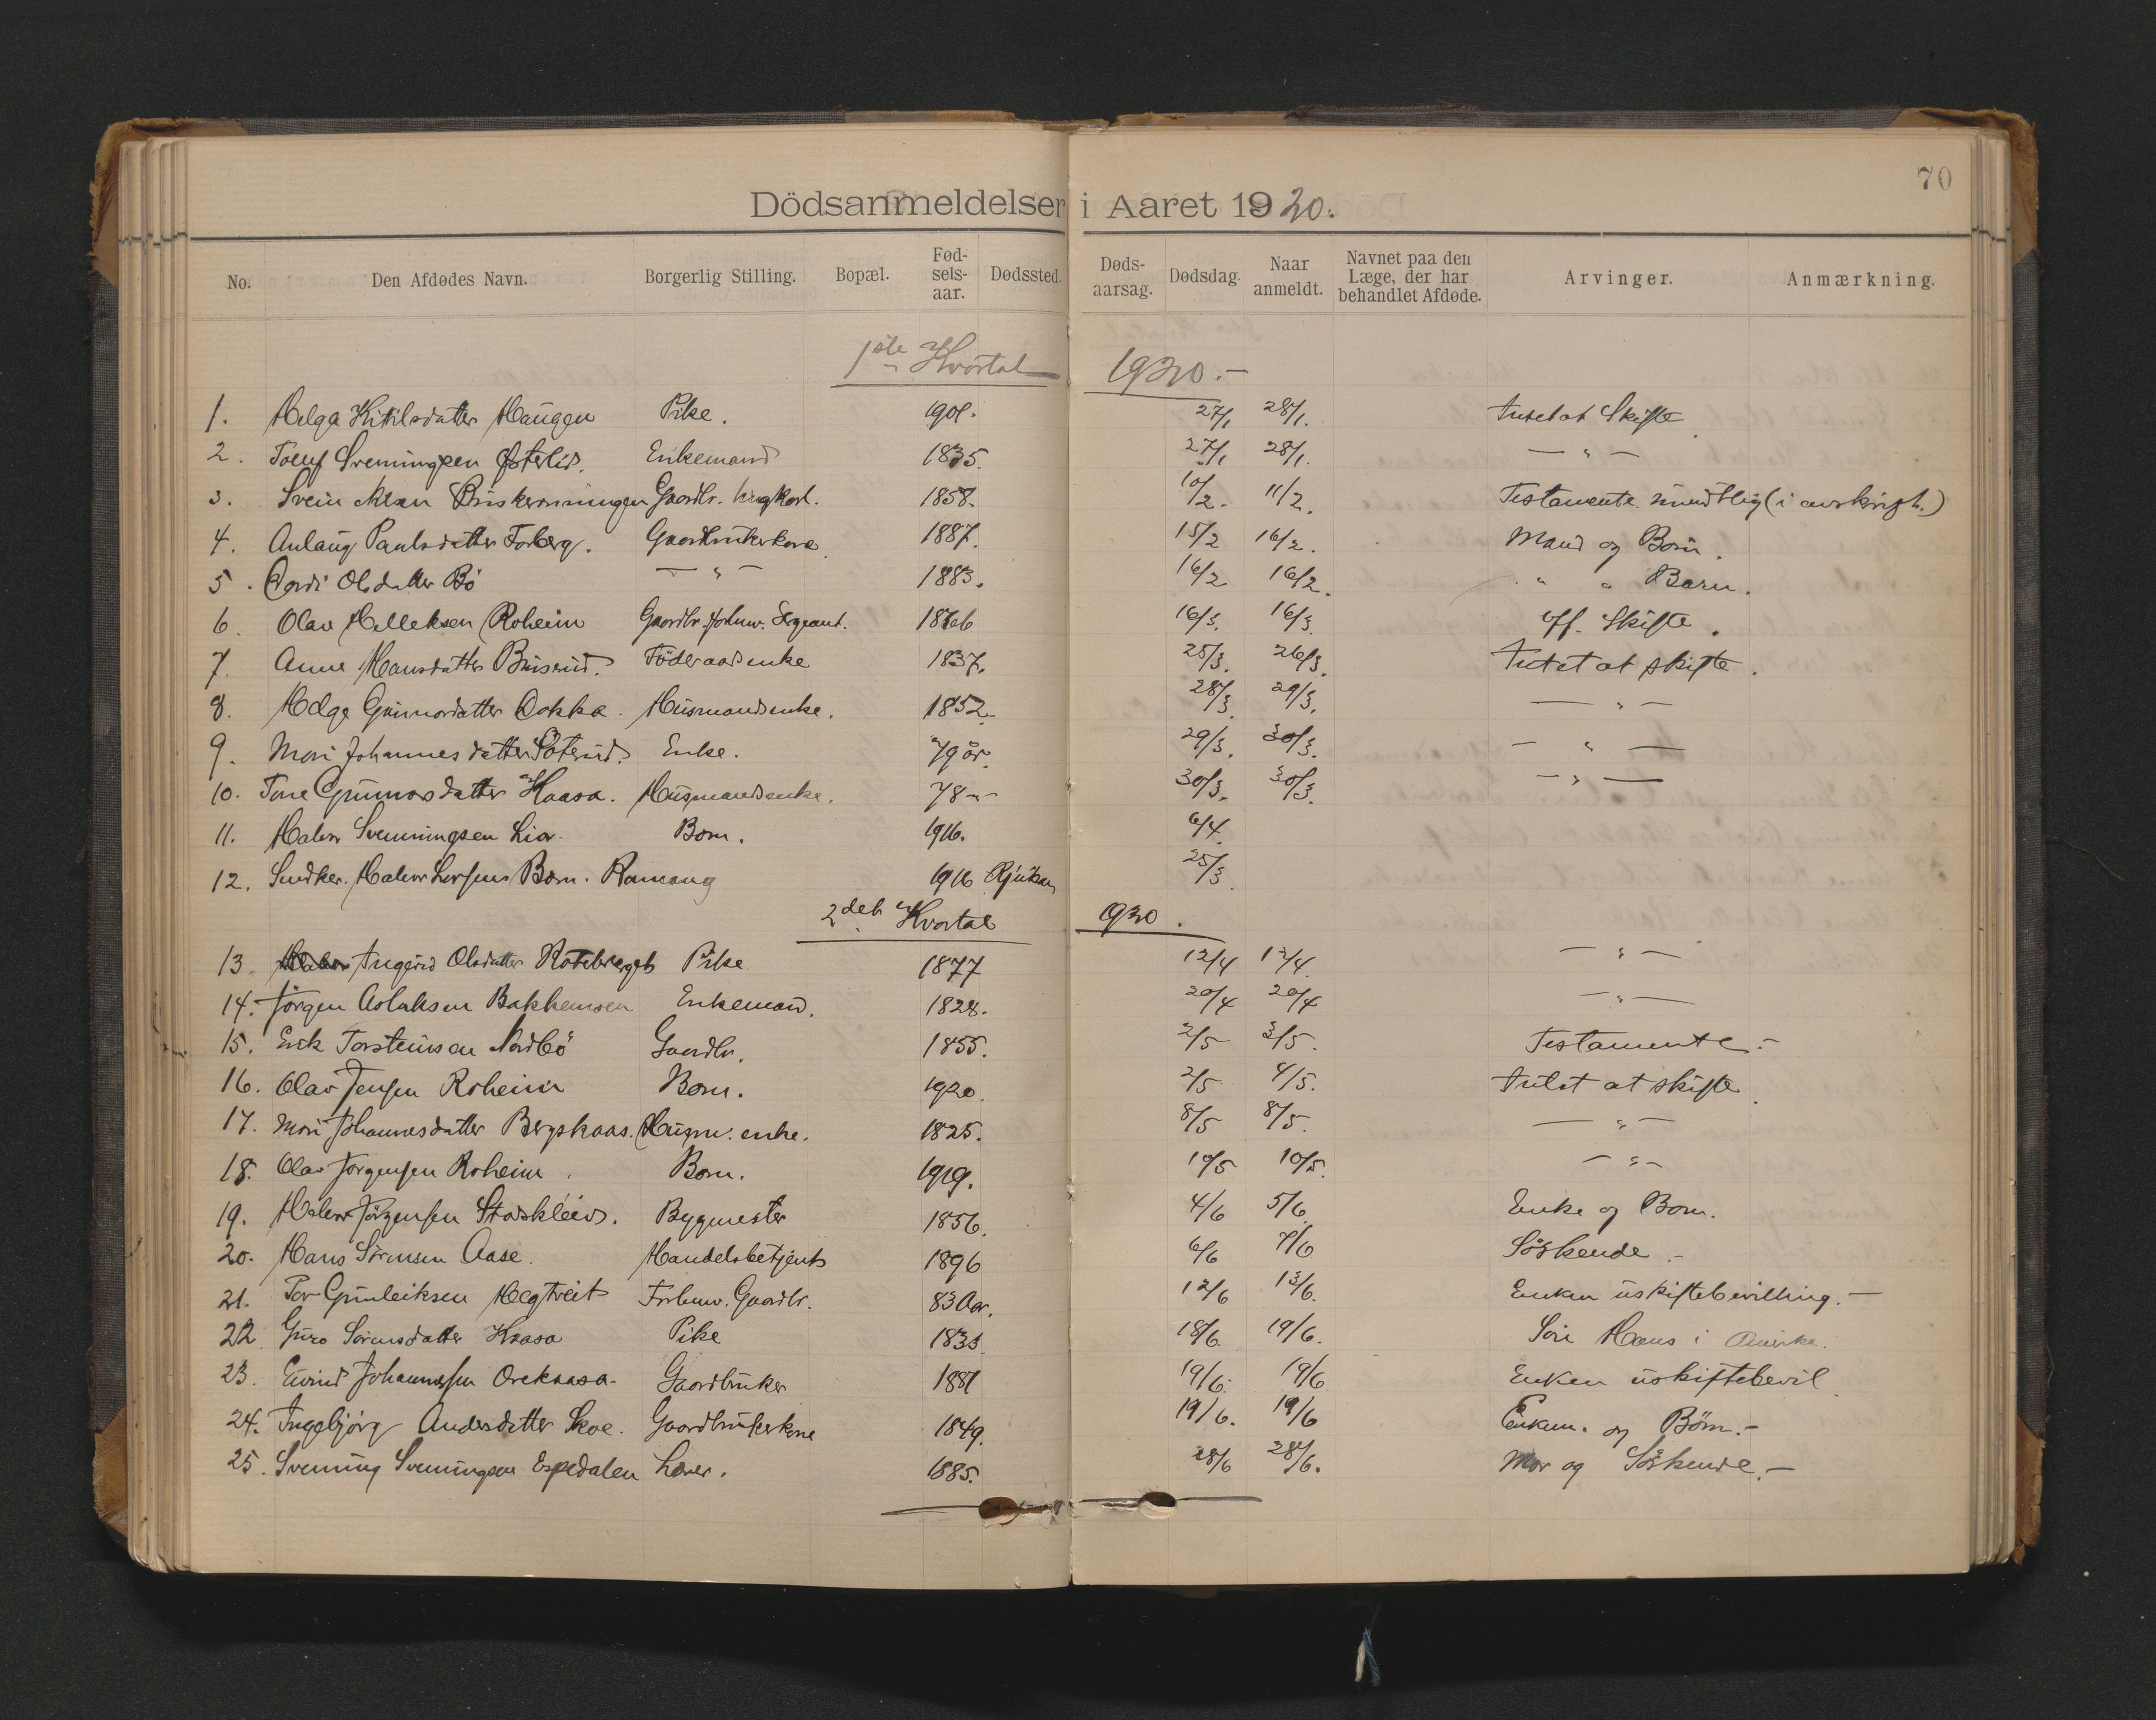 70
Dödsanmeldelser i Aaret 1920.
No. Den Afdødes Navn. Borgerlig Stilling. Bopæl. Fød-sels-aar. Dødssted. Døds-aarsag. Dødsdag. Naar anmeldt. Navnet paa den Læge, der har behandlet Afdøde. Arvinger. Anmærkning.
1ste Kvartal 1920.-
1. Helga Kittilsdatter Haugen Pike. 1901. 27/1 28/1. Intet at Skifte.
2. Tollef Sveningsen Østerlid. Enkemand 1835. 27/1 28/1. — " —
3. Svein Gaardbr. Ungkarl. 1858. 10/2. 11/2. Testamente mundtlig (i avskrift.)
4. Anlaug Paulsdatter Forberg. Gaardbrukerkone. 1887. 15/2 16/2. Mand og Barn.
5. Olsdatter Bö — " — 1883. 16/2 16/2. " " Barn.
6. Olav Helleksen Roheim Gaardbr. forhenv. Sergeant. 16/3. 16/3. Off. Skifte.
7. Anne Hansdatter Buserud. Föderaadsenke 1837. 25/3. 26/3. Intet at skifte.
8. Helge Gunnarsdatter Dokka. Husmandsenke. 1852. 28/3. 29/3. — " —
9. Mari Johannesdatter Enke. 79 år. 29/3. 30/3. — " —
10. Tone Gunnarsdatter Haasa. Husmandsenke. 78 -"- 30/3. 30/3. — " —
11. Halvor Svenningsen Lia. Barn. 1916. 6/4.
12. Snedker. Halvor Barn. Ramang 1916 Rjukan 25/3.
2det Kvartal 1920.
13. Ingerid Olsdatter Roteberget Pike 1877 12/4 12/4. — " —
14. Jörgen Aslaksen Bakkemoen Enkemand. 1828. 20/4 20/4 — " —
15. Erik Torsteinsen Nordbö Gaardbr. 1855. 2/5 3/5. Testamente.-
16. Olav Jensen Roheim Barn. 1920. 2/5 4/5. Intet at skifte.
17. Mari Johannesdatter Bergskaas. Husm. enke. 1825. 8/5 8/5. — " —
18. Olav Jorgensen Roheim. Barn. 1919. 10/5 10/5. — " —
19. Halvor Jörgensen Stadskleiv. Bygmester 1856. 4/6 5/6 Enke og Barn.
20. Hans Sörensen Aase. Handelsbetjent 1896 6/6 7/6 Söskende.-
21. Tor Gunleiksen Hegtveit Forhenv. Gaardbr. 83 Aar. 12/6 13/6. Enken uskiftebevilling.—
22 Guro Sörensdatter Haasa Pike 1833. 18/6. 19/6. Hans i Amerika.
23. Eivind Johannessen Orekaasa. Gaardbruker 1881 19/6. 19/6 Enken uskiftebevil.
24. Ingebjörg Andersdatter Skoe. Gaardbrukerkone 1849. 19/6. 19/6 Enkem. og Börn.-
25. Svening Sveningsen Espedalen Lærer. 1885. 28/6 28/6. Mor og Söskende.—